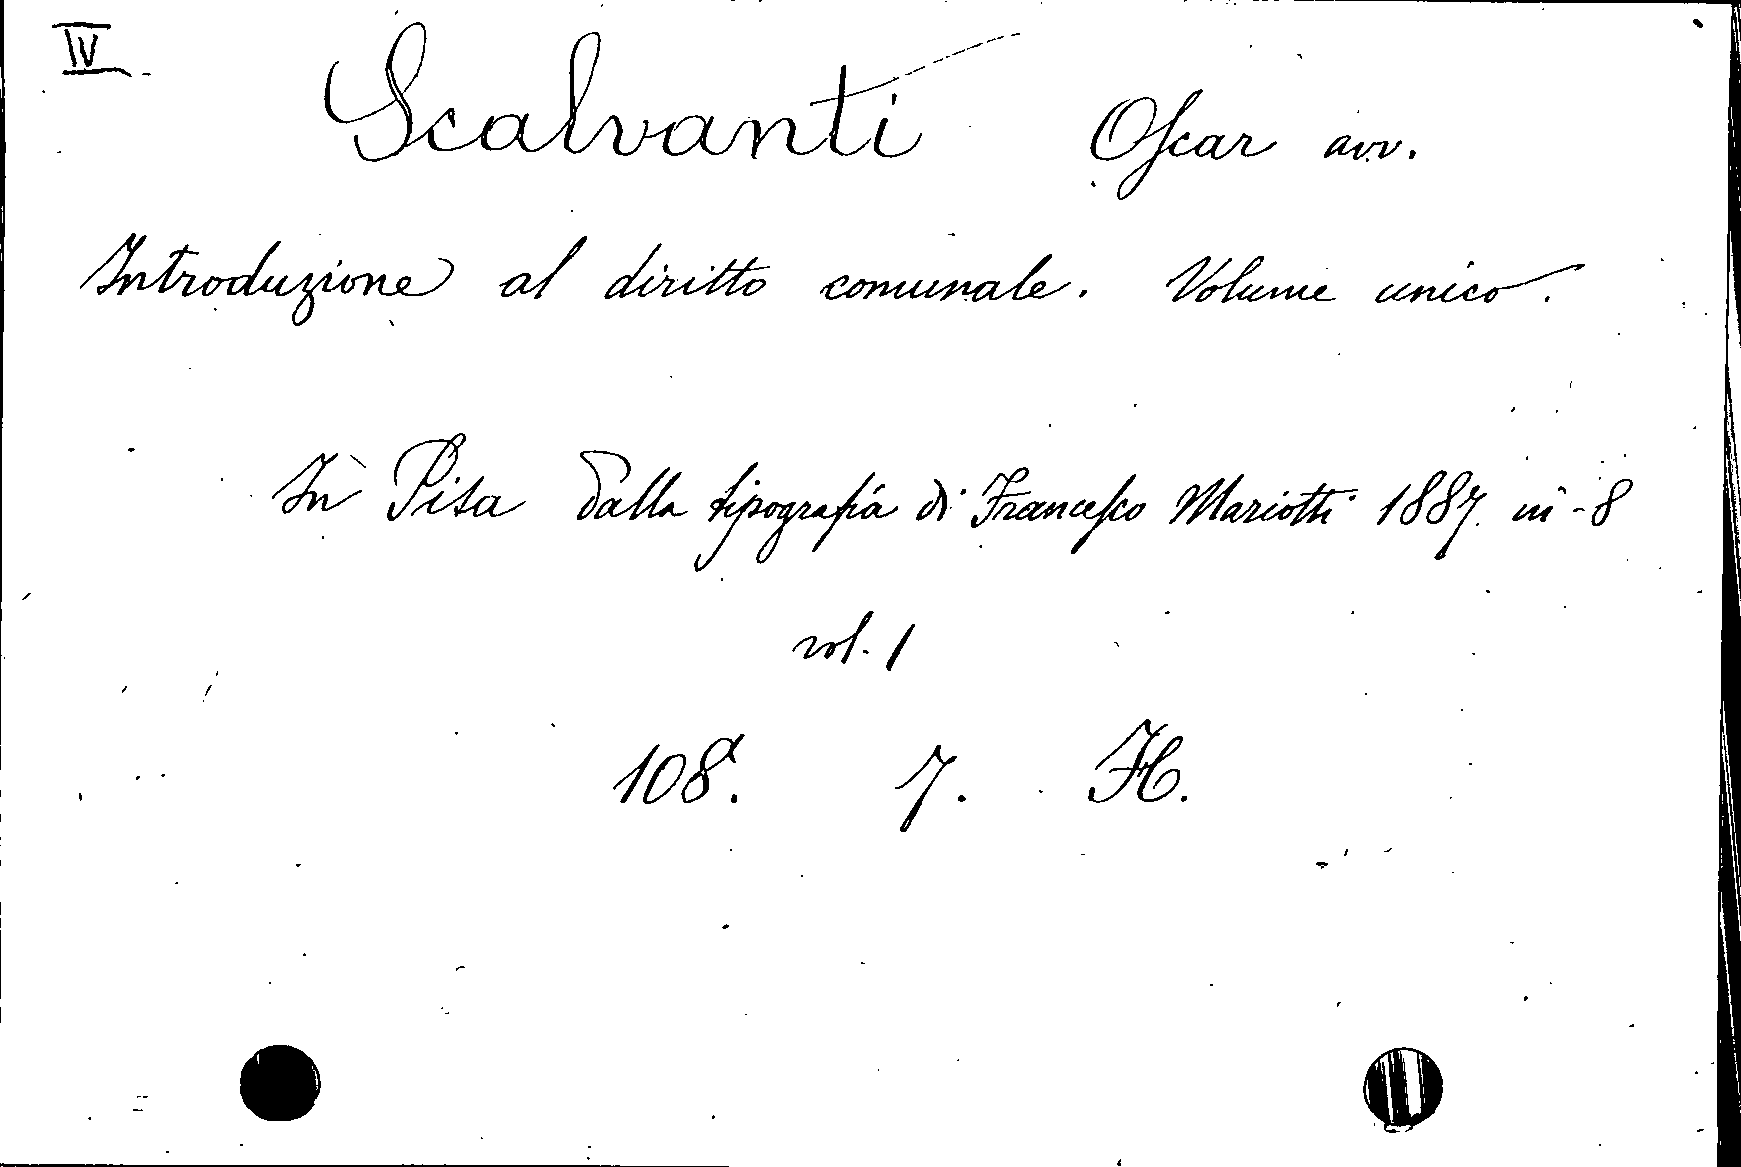 IV
Scalvanti Oscar avv.
Introduzione al diritto comunale. Volume unico.
In Pisa dalla tipografia di Francesco Mariotti 1887. in-8
vol. 1
108. 7. H.